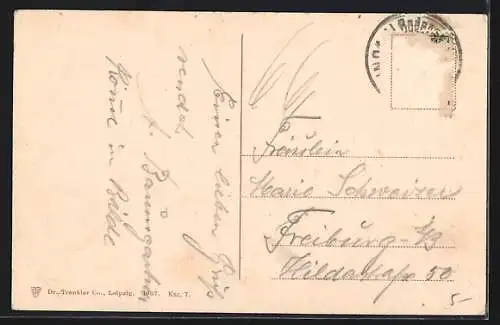 Einen lieben Gruß
sendet
A. Baumgartner
Komme in Bälde
Fräulein
Marie Schweizer
Freiburg i/B
Hildastraße 50
5-
Dr. Trenkler Co., Leipzig. 1907. Ksz. 7.